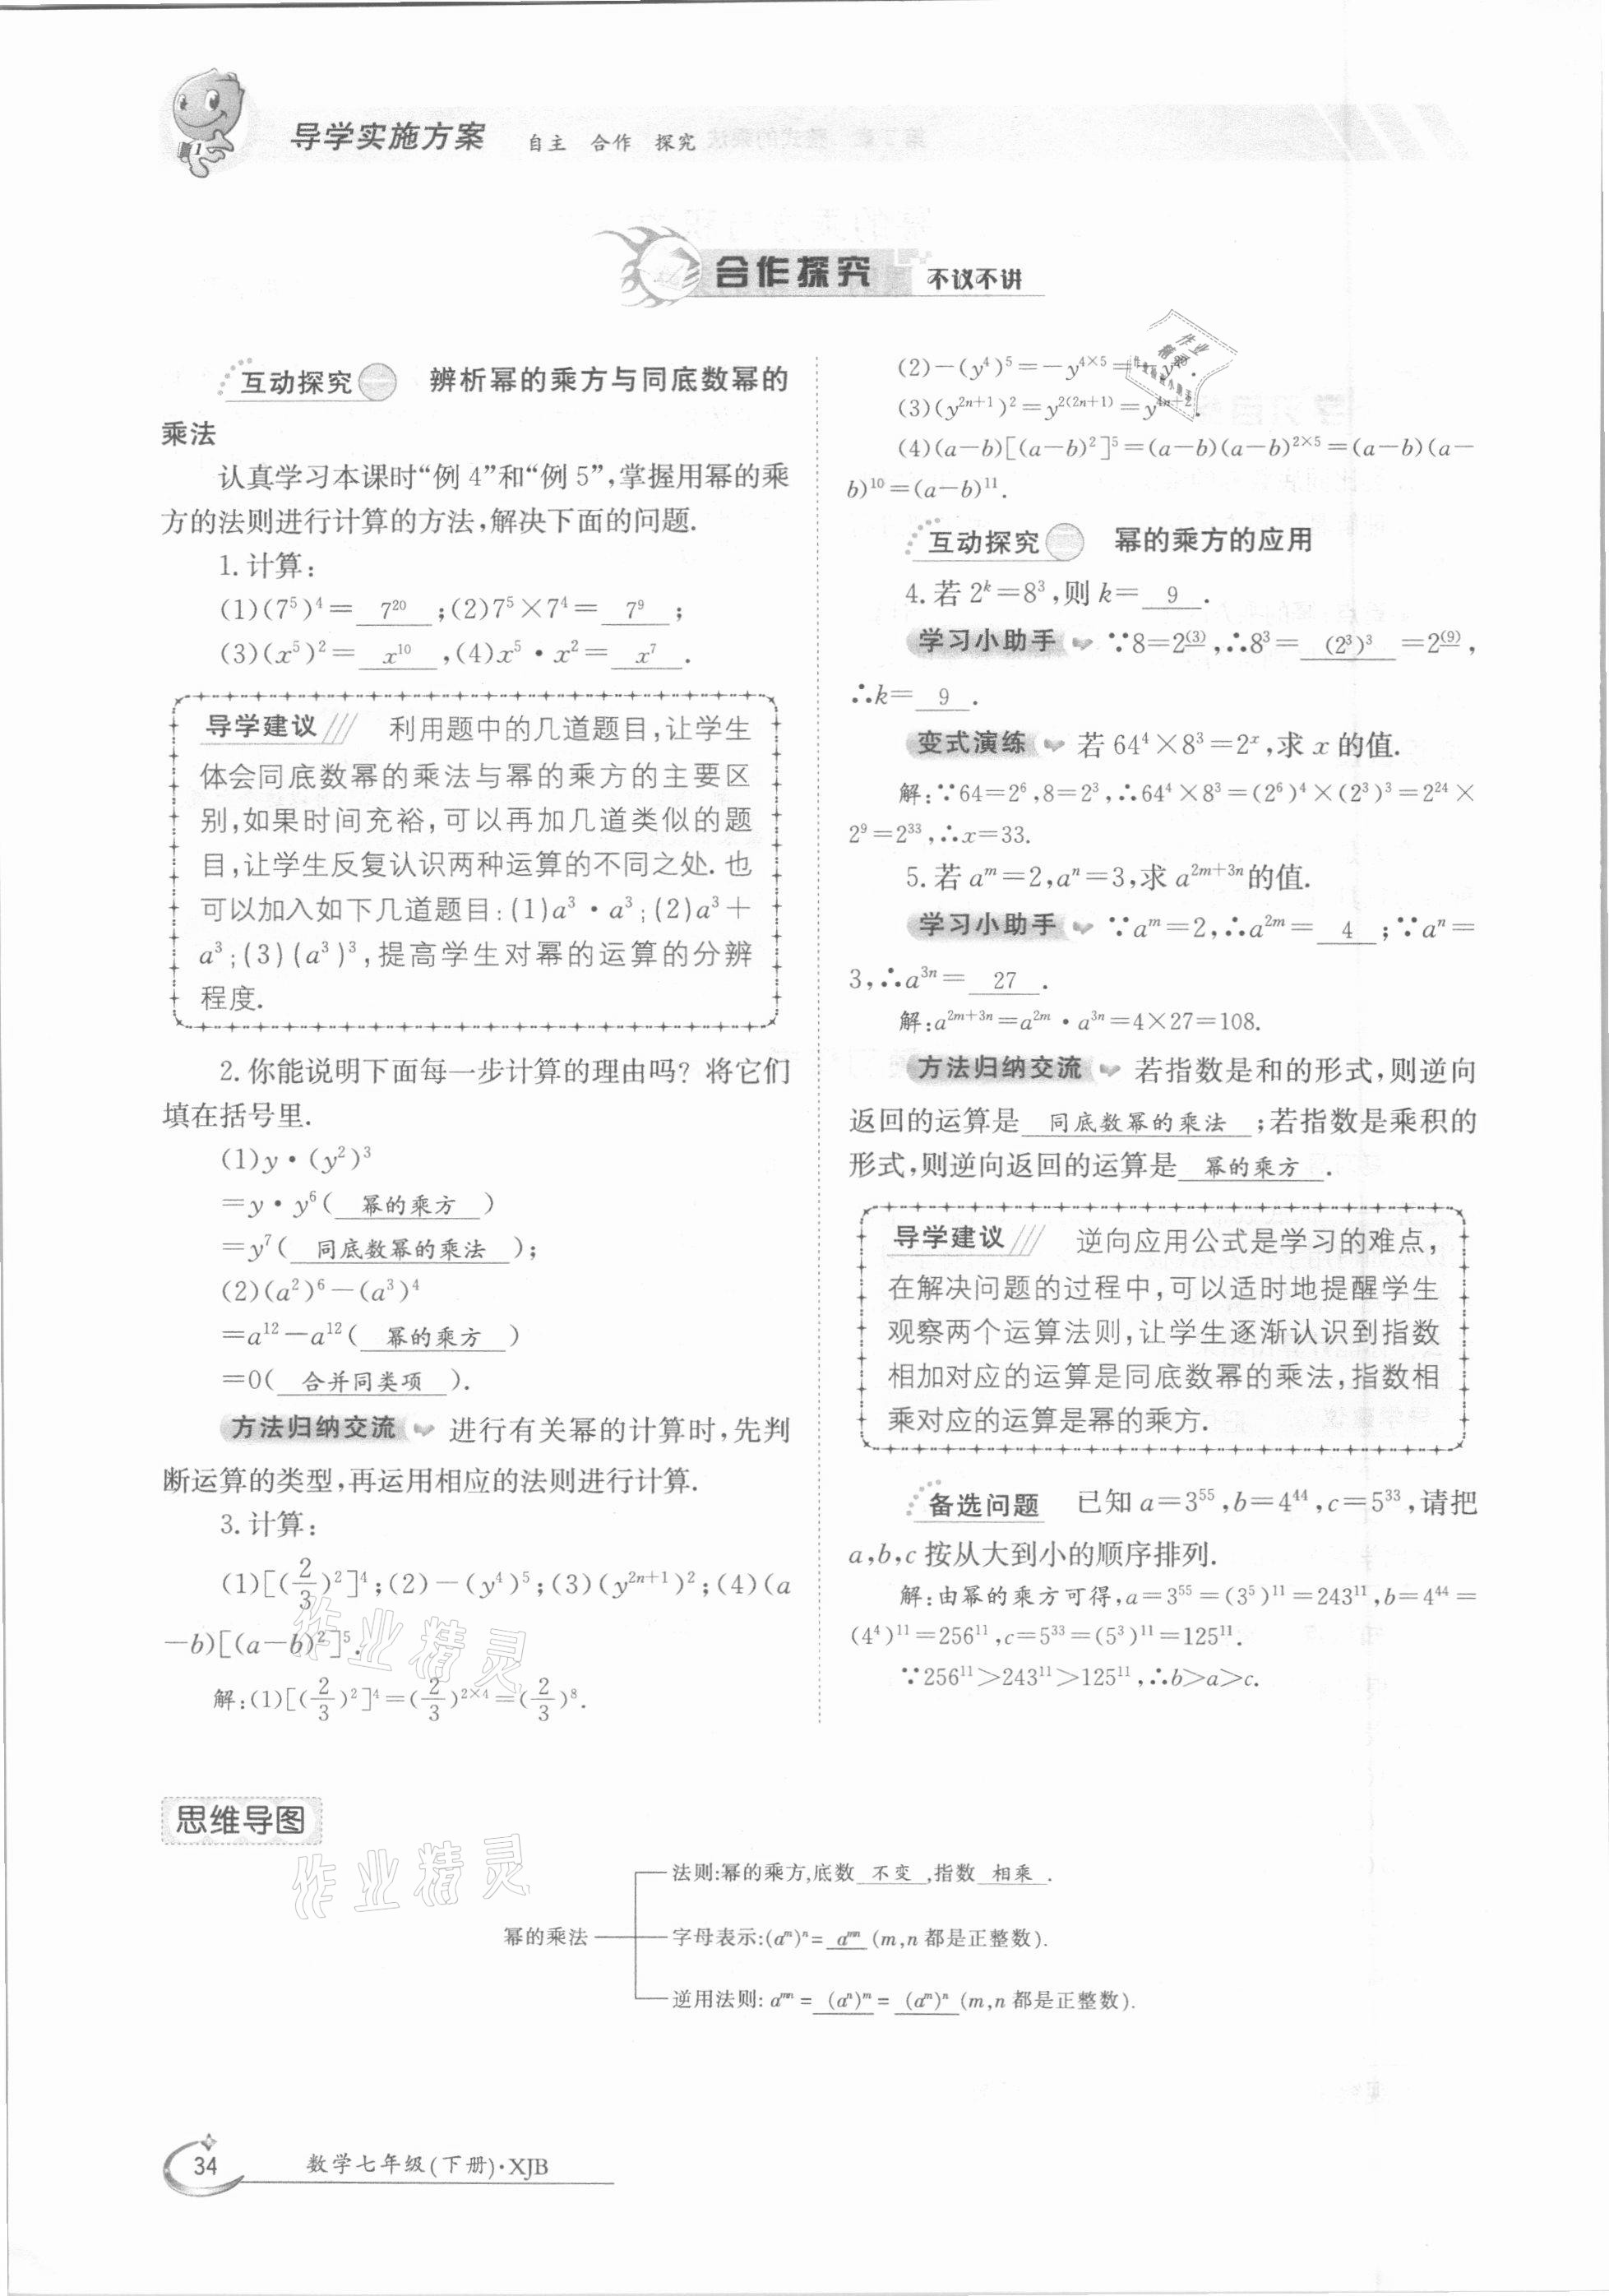 导学实施方案 自主 合作 探究
合作探究 不议不讲
互动探究一 辨析幂的乘方与同底数幂的
乘法
认真学习本课时“例 4”和“例 5”,掌握用幂的乘
方的法则进行计算的方法,解决下面的问题.
1.计算:
(1)(7⁵)⁴= 7²⁰ ;(2)7⁵×7⁴= 7⁹ ;
(3)(x⁵)²= x¹⁰ ,(4)x⁵·x²= x⁷ .
导学建议 利用题中的几道题目,让学生
体会同底数幂的乘法与幂的乘方的主要区
别,如果时间充裕,可以再加几道类似的题
目,让学生反复认识两种运算的不同之处.也
可以加入如下几道题目:(1)a³·a³;(2)a³+
a³;(3)(a³)³,提高学生对幂的运算的分辨
程度.
2.你能说明下面每一步计算的理由吗? 将它们
填在括号里.
(1)y·(y²)³
=y·y⁶( 幂的乘方 )
=y⁷( 同底数幂的乘法 );
(2)(a²)⁶-(a³)⁴
=a¹²-a¹²( 幂的乘方 )
=0( 合并同类项 ).
方法归纳交流 进行有关幂的计算时,先判
断运算的类型,再运用相应的法则进行计算.
3.计算:
(1)[(2/3)²]⁴;(2)-(y⁴)⁵;(3)(y²ⁿ⁺¹)²;(4)(a
-b)[(a-b)²]⁵.
解:(1)[(2/3)²]⁴=(2/3)²ˣ⁴=(2/3)⁸.
(2)-(y⁴)⁵=-y⁴ˣ⁵=-y²⁰.
(3)(y²ⁿ⁺¹)²=y²⁽²ⁿ⁺¹⁾=y⁴ⁿ⁺².
(4)(a-b)[(a-b)²]⁵=(a-b)(a-b)²ˣ⁵=(a-b)(a-
b)¹⁰=(a-b)¹¹.
互动探究 幂的乘方的应用
4.若 2ᵏ=8³,则 k= 9 .
学习小助手 ∵8=2⁽³⁾,∴8³= (2³)³ =2⁽⁹⁾,
∴k= 9 .
变式演练 若 64⁴×8³=2ˣ,求 x 的值.
解:∵64=2⁶,8=2³,∴64⁴×8³=(2⁶)⁴×(2³)³=2²⁴×
2⁹=2³³,∴x=33.
5.若 aᵐ=2,aⁿ=3,求 a²ᵐ⁺³ⁿ的值.
学习小助手 ∵aᵐ=2,∴a²ᵐ= 4 ;∵aⁿ=
3,∴a³ⁿ= 27 .
解:a²ᵐ⁺³ⁿ=a²ᵐ·a³ⁿ=4×27=108.
方法归纳交流 若指数是和的形式,则逆向
返回的运算是 同底数幂的乘法 ;若指数是乘积的
形式,则逆向返回的运算是 幂的乘方 .
导学建议 逆向应用公式是学习的难点,
在解决问题的过程中,可以适时地提醒学生
观察两个运算法则,让学生逐渐认识到指数
相加对应的运算是同底数幂的乘法,指数相
乘对应的运算是幂的乘方.
备选问题 已知 a=3⁵⁵,b=4⁴⁴,c=5³³,请把
a,b,c 按从大到小的顺序排列.
解:由幂的乘方可得,a=3⁵⁵=(3⁵)¹¹=243¹¹,b=4⁴⁴=
(4⁴)¹¹=256¹¹,c=5³³=(5³)¹¹=125¹¹.
∵256¹¹>243¹¹>125¹¹,∴b>a>c.
作业精灵
思维导图
作业精灵
法则:幂的乘方,底数 不变 ,指数 相乘 .
幂的乘法 字母表示:(aᵐ)ⁿ= aᵐⁿ (m,n 都是正整数).
逆用法则: aᵐⁿ= (aⁿ)ᵐ = (aᵐ)ⁿ (m,n 都是正整数).
34 数学七年级(下册)·XJB